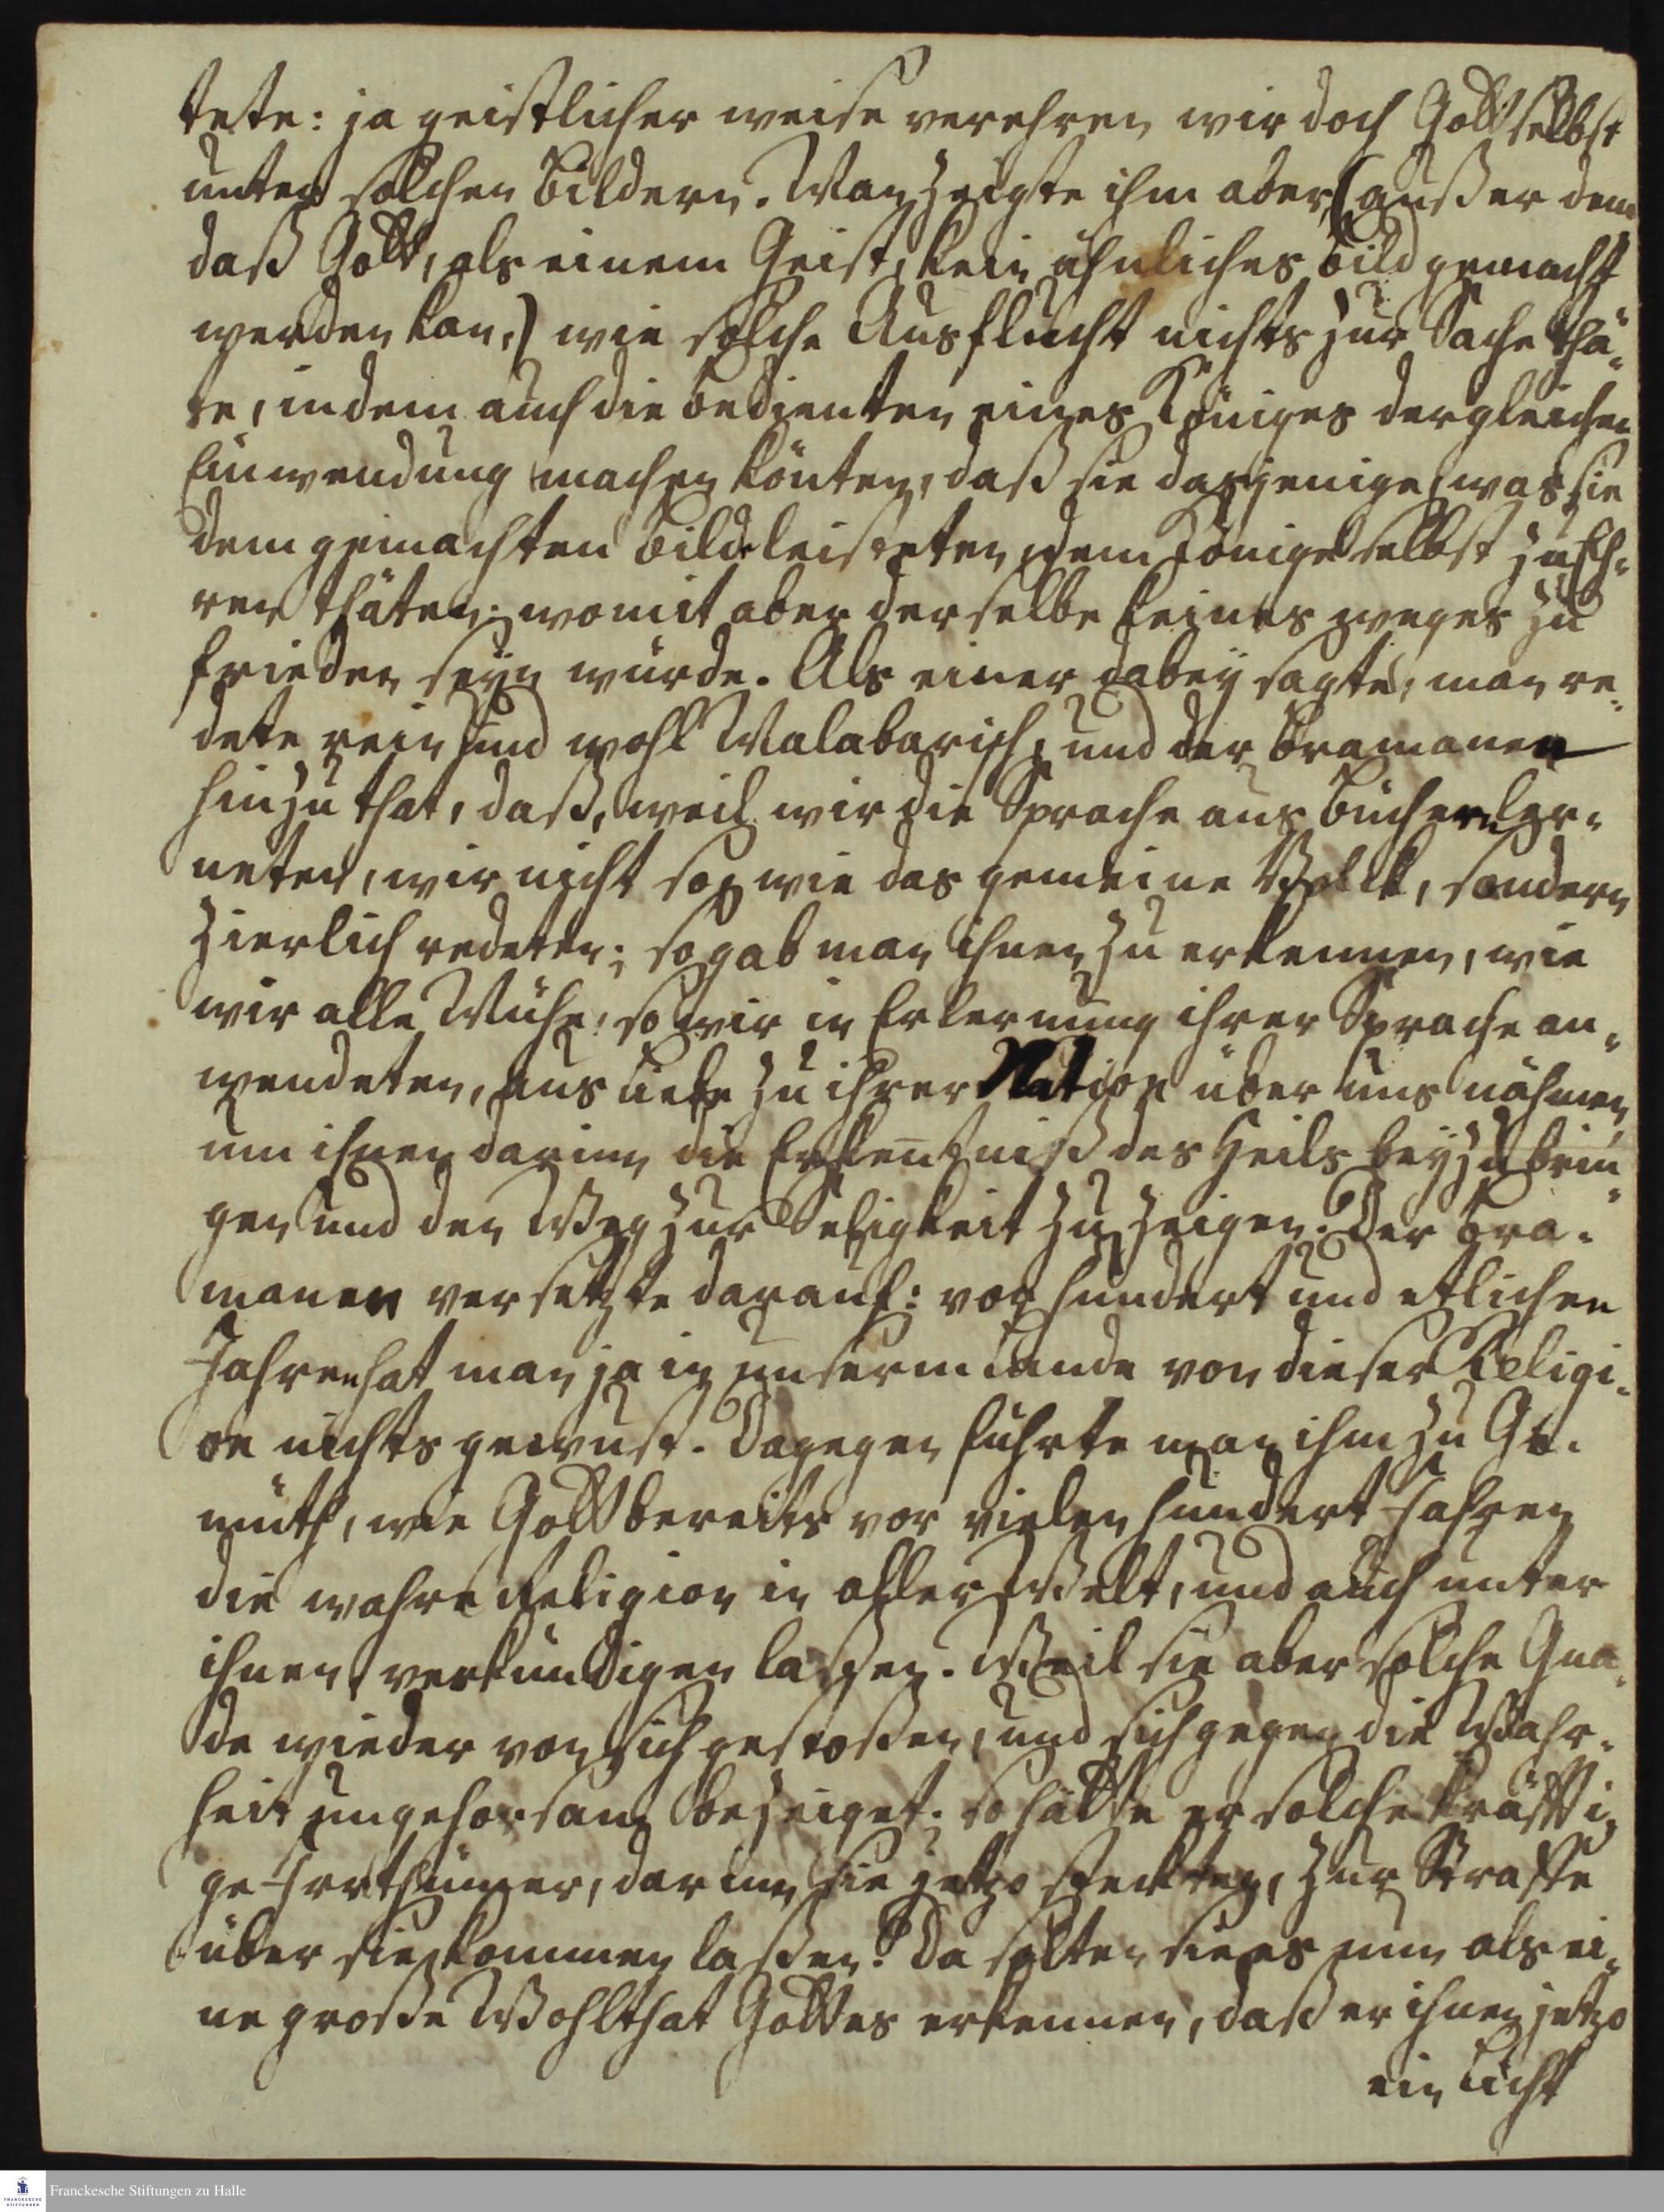 tete: ja geistlicher weise verehren wir doch Gott selbst
unter solchen Bildern. Man zeigte ihm aber, (außer dem
daß Gott, als einem Geist, kein ähnliches Bild gemacht
werden kan,) wie solche Ausflucht nichts zur Sache thä-
te, indem auch die Bedienten eines Königes dergleichen
Einwendung machen könten, daß sie dasjenige, was sie
dem gemachten Bilde leisteten, dem Könige selbst zu Eh-
ren thäten; womit aber derselbe keines weges zu
frieden seyn würde. Als einer dabey sagte, man re-
dete rein und wohl Malabarisch, und der Bramaner
hinzu that, daß, weil wir die Sprache aus Büchern ler-
neten, wir nicht so, wie das gemeine Volck, sondern
zierlich redeten; so gab man ihnen zu erkennen, wie
wir alle Mühe, so wir in Erlernung ihrer Sprache an-
wendeten, aus Liebe zu ihrer Nation über uns nähmen,
um ihnen darinn die Erkentniß des Heils beyzubrin-
gen und den Weg zur Seligkeit zu zeigen. Der Bra-
maner versetzte darauf: vor hundert und etlichen
Jahren hat man ja in unserm Lande von dieser Religi-
on nichts gewust. Dagegen führte man ihm zu Ge-
müth, wie Gott bereits vor vielen hundert Jahren
die wahre Religion in aller Welt, und auch unter
ihnen verkündigen laßen. Weil sie aber solche Gna-
de wieder von sich gestoßen, und sich gegen die Wahr-
heit ungehorsam bezeiget; so hätte er solche kräffti-
ge Irrthümer, darinn sie jetzo steckten, zur Straffe
über sie kommen laßen. Da solten sie es nun als ei-
ne große Wohlthat Gottes erkennen, daß er ihnen jetzo
ein Licht
Franckesche Stiftungen zu Halle
FRANCKESCHE
STIFTUNGEN